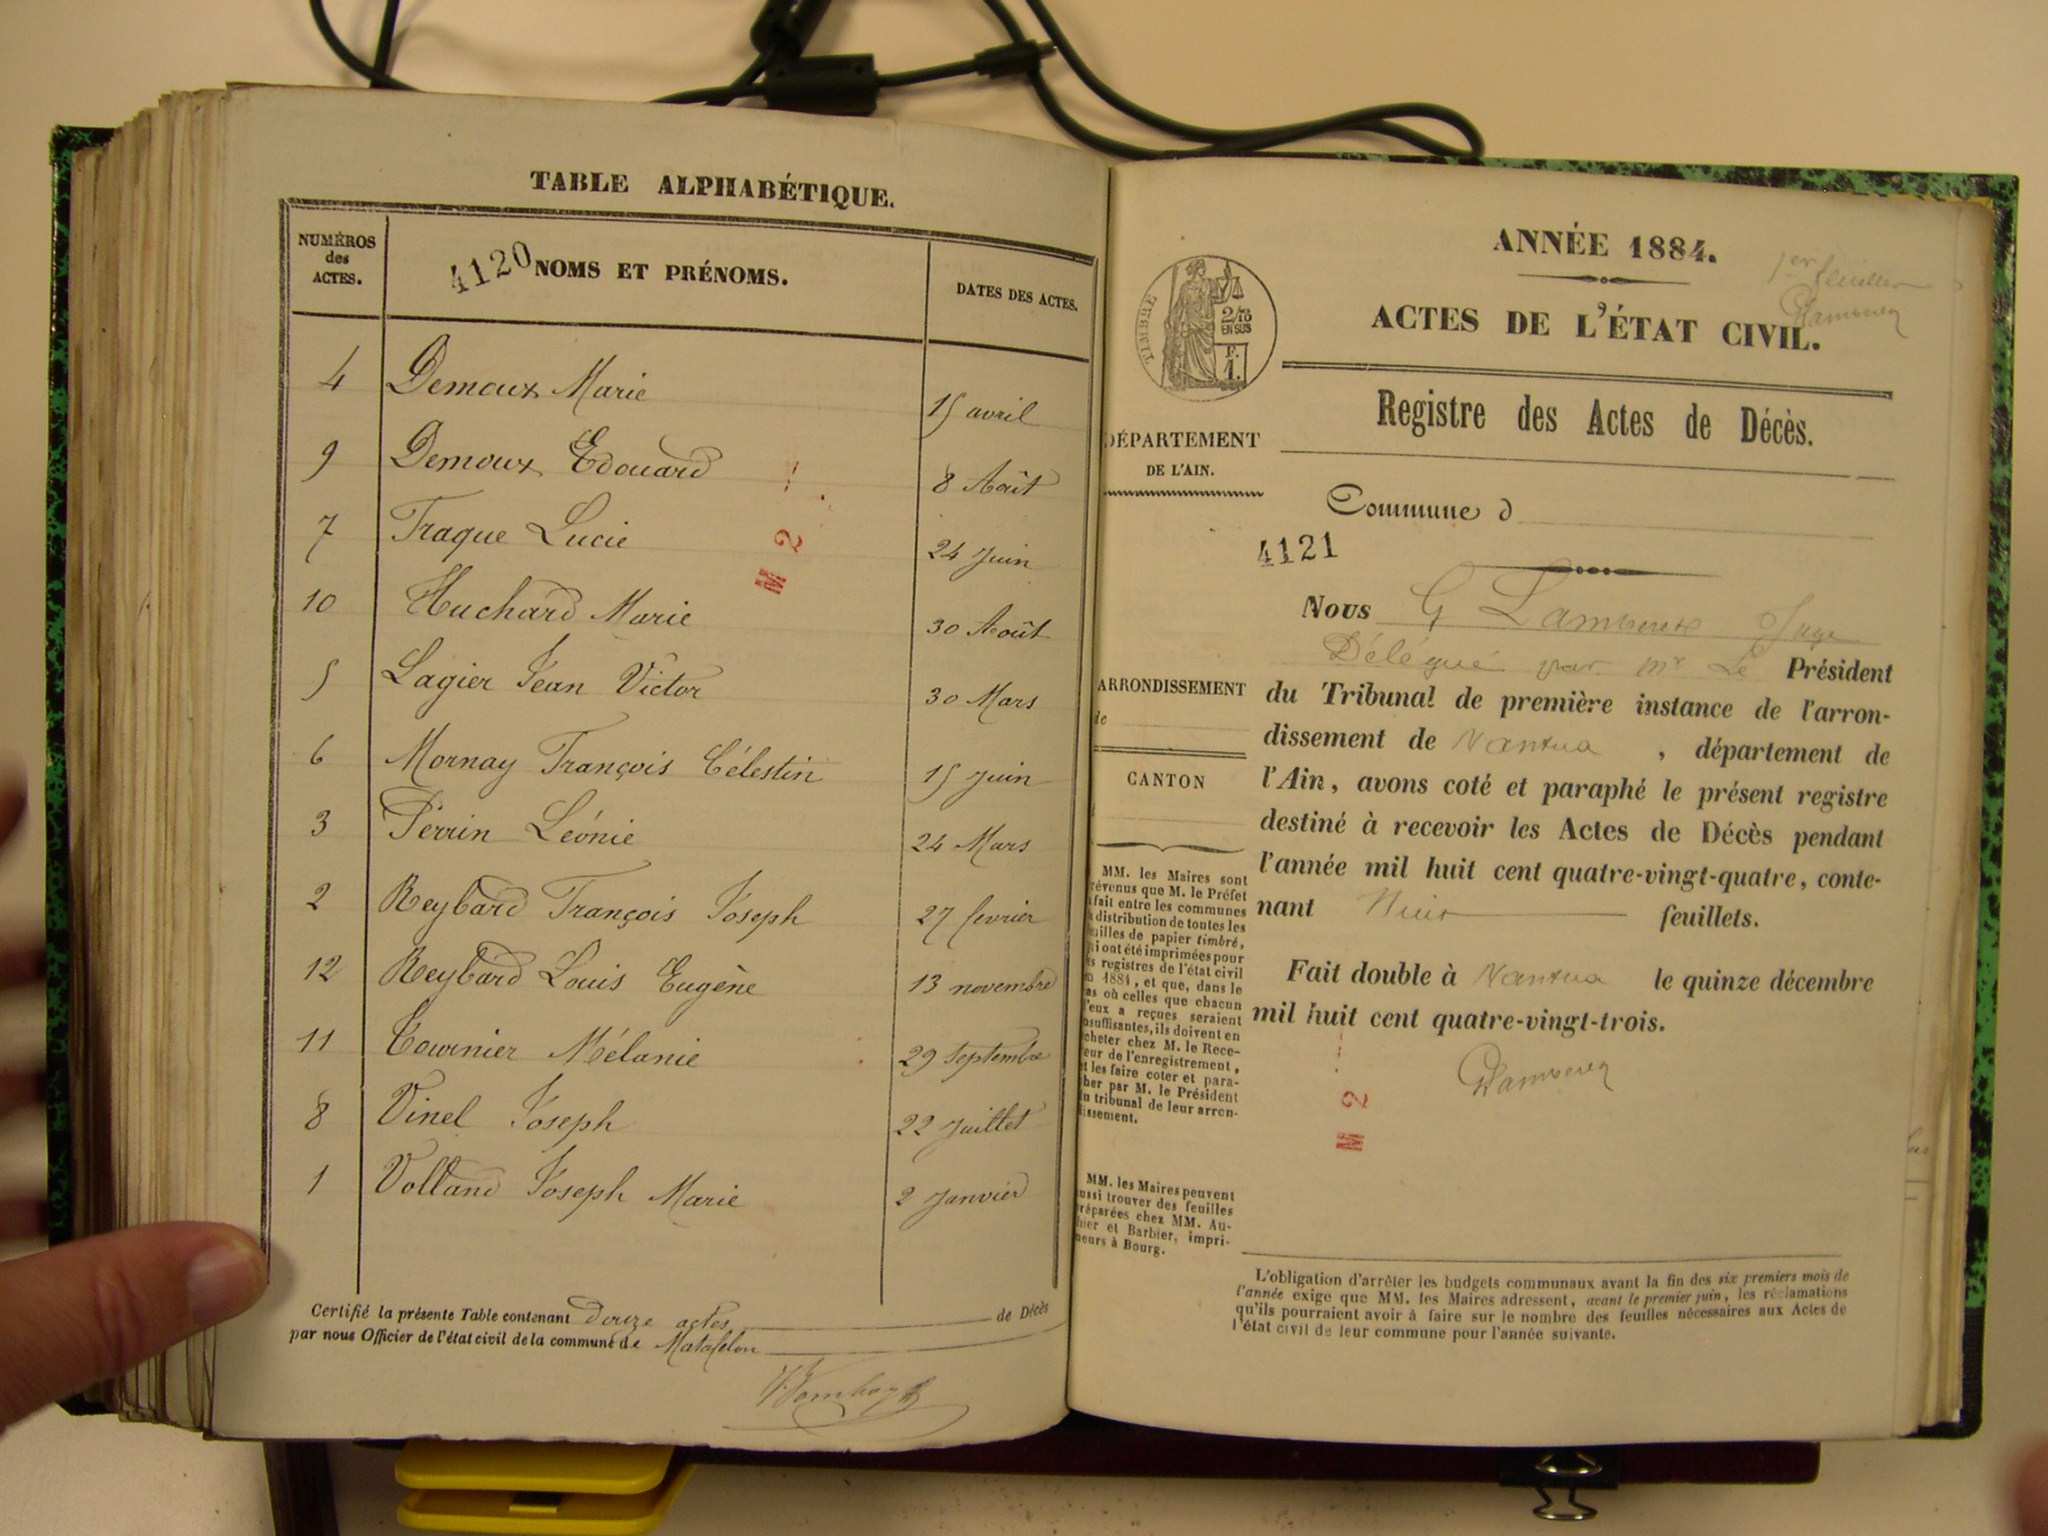 TABLE ALPHABÉTIQUE.
NUMÉROS
des
ACTES.
4120 NOMS ET PRÉNOMS.
DATES DES ACTES.
4 Demoux Marie 15 avril
9 Demoux Edouard 8 Août
7 Fraque Lucie 24 Juin
10 Huchard Marie 30 Août
5 Lagier Jean Victor 30 Mars
6 Mornay François Célestin 15 Juin
3 Perrin Léonie 24 Mars
2 Reybard François Joseph 27 fevrier
12 Reybard Louis Eugène 13 novembre
11 Tournier Mélanie 29 Septembre
8 Vinel Joseph 22 Juillet
1 Volland Joseph Marie 2 Janvier
M 2
Certifié la présente Table contenant Douze actes de Décès
par nous Officier de l'état civil de la commune de Matafelon
ANNÉE 1884.
1er feuillet
ACTES DE L'ÉTAT CIVIL.
TIMBRE
2/10
EN SUS
F.
1.
Registre des Actes de Décès.
DÉPARTEMENT
DE L'AIN.
Commune d
4121
Nous G Lambert Juge
Délégué par Mr Le Président
du Tribunal de première instance de l'arron-
dissement de Nantua, département de
l'Ain, avons coté et paraphé le présent registre
destiné à recevoir les Actes de Décès pendant
l'année mil huit cent quatre-vingt-quatre, conte-
nant Huit feuillets.
Fait double à Nantua le quinze décembre
mil huit cent quatre-vingt-trois.
M 2
ARRONDISSEMENT
de
CANTON
MM. les Maires sont
prévenus que M. le Préfet
a fait entre les communes
la distribution de toutes les
feuilles de papier timbré,
qui ont été imprimées pour
les registres de l'état civil
en 1884, et que, dans le
cas où celles que chacun
d'eux a reçues seraient
insuffisantes, ils doivent en
acheter chez M. le Rece-
veur de l'enregistrement,
et les faire coter et para-
pher par M. le Président
du tribunal de leur arron-
dissement.
MM. les Maires peuvent
aussi trouver des feuilles
préparées chez MM. Au-
thier et Barbier, impri-
meurs à Bourg.
L'obligation d'arrêter les budgets communaux avant la fin des six premiers mois de
l'année exige que MM. les Maires adressent, avant le premier juin, les réclamations
qu'ils pourraient avoir à faire sur le nombre des feuilles nécessaires aux Actes de
l'état civil de leur commune pour l'année suivante.